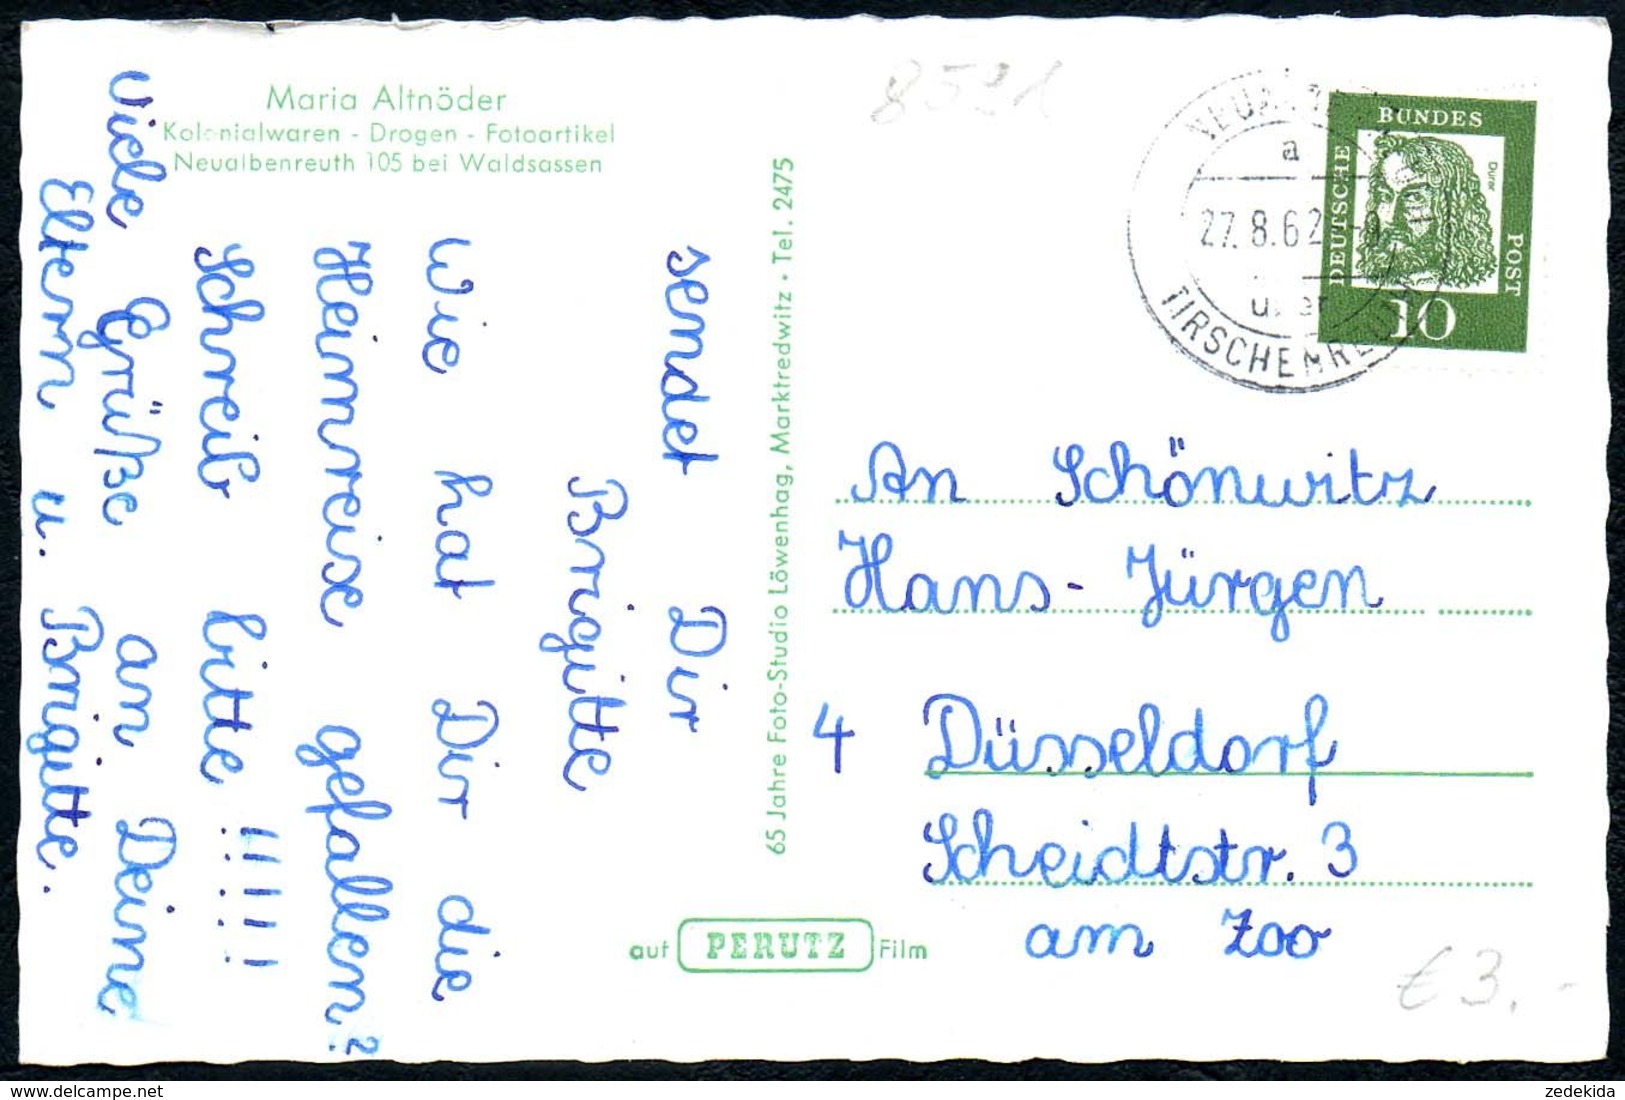 Maria Altnöder
Kolonialwaren - Drogen - Fotoartikel
Neualbenreuth 105 bei Waldsassen
sendet Dir
Brigitte
Wie hat Dir die
Heimreise gefallen?
Schreib bitte !!!!!
Viele Grüße an Deine
Eltern u. Brigitte.
65 Jahre Foto-Studio Löwenhag, Marktredwitz · Tel. 2475
auf PERUTZ Film
8591
a
27.8.62
TIRSCHENREUTH
DEUTSCHE
BUNDES
POST
Dürer
10
An Schönwitz
Hans-Jürgen
4 Düsseldorf
Scheidtstr. 3
am Zoo
€ 3.-
zedekida